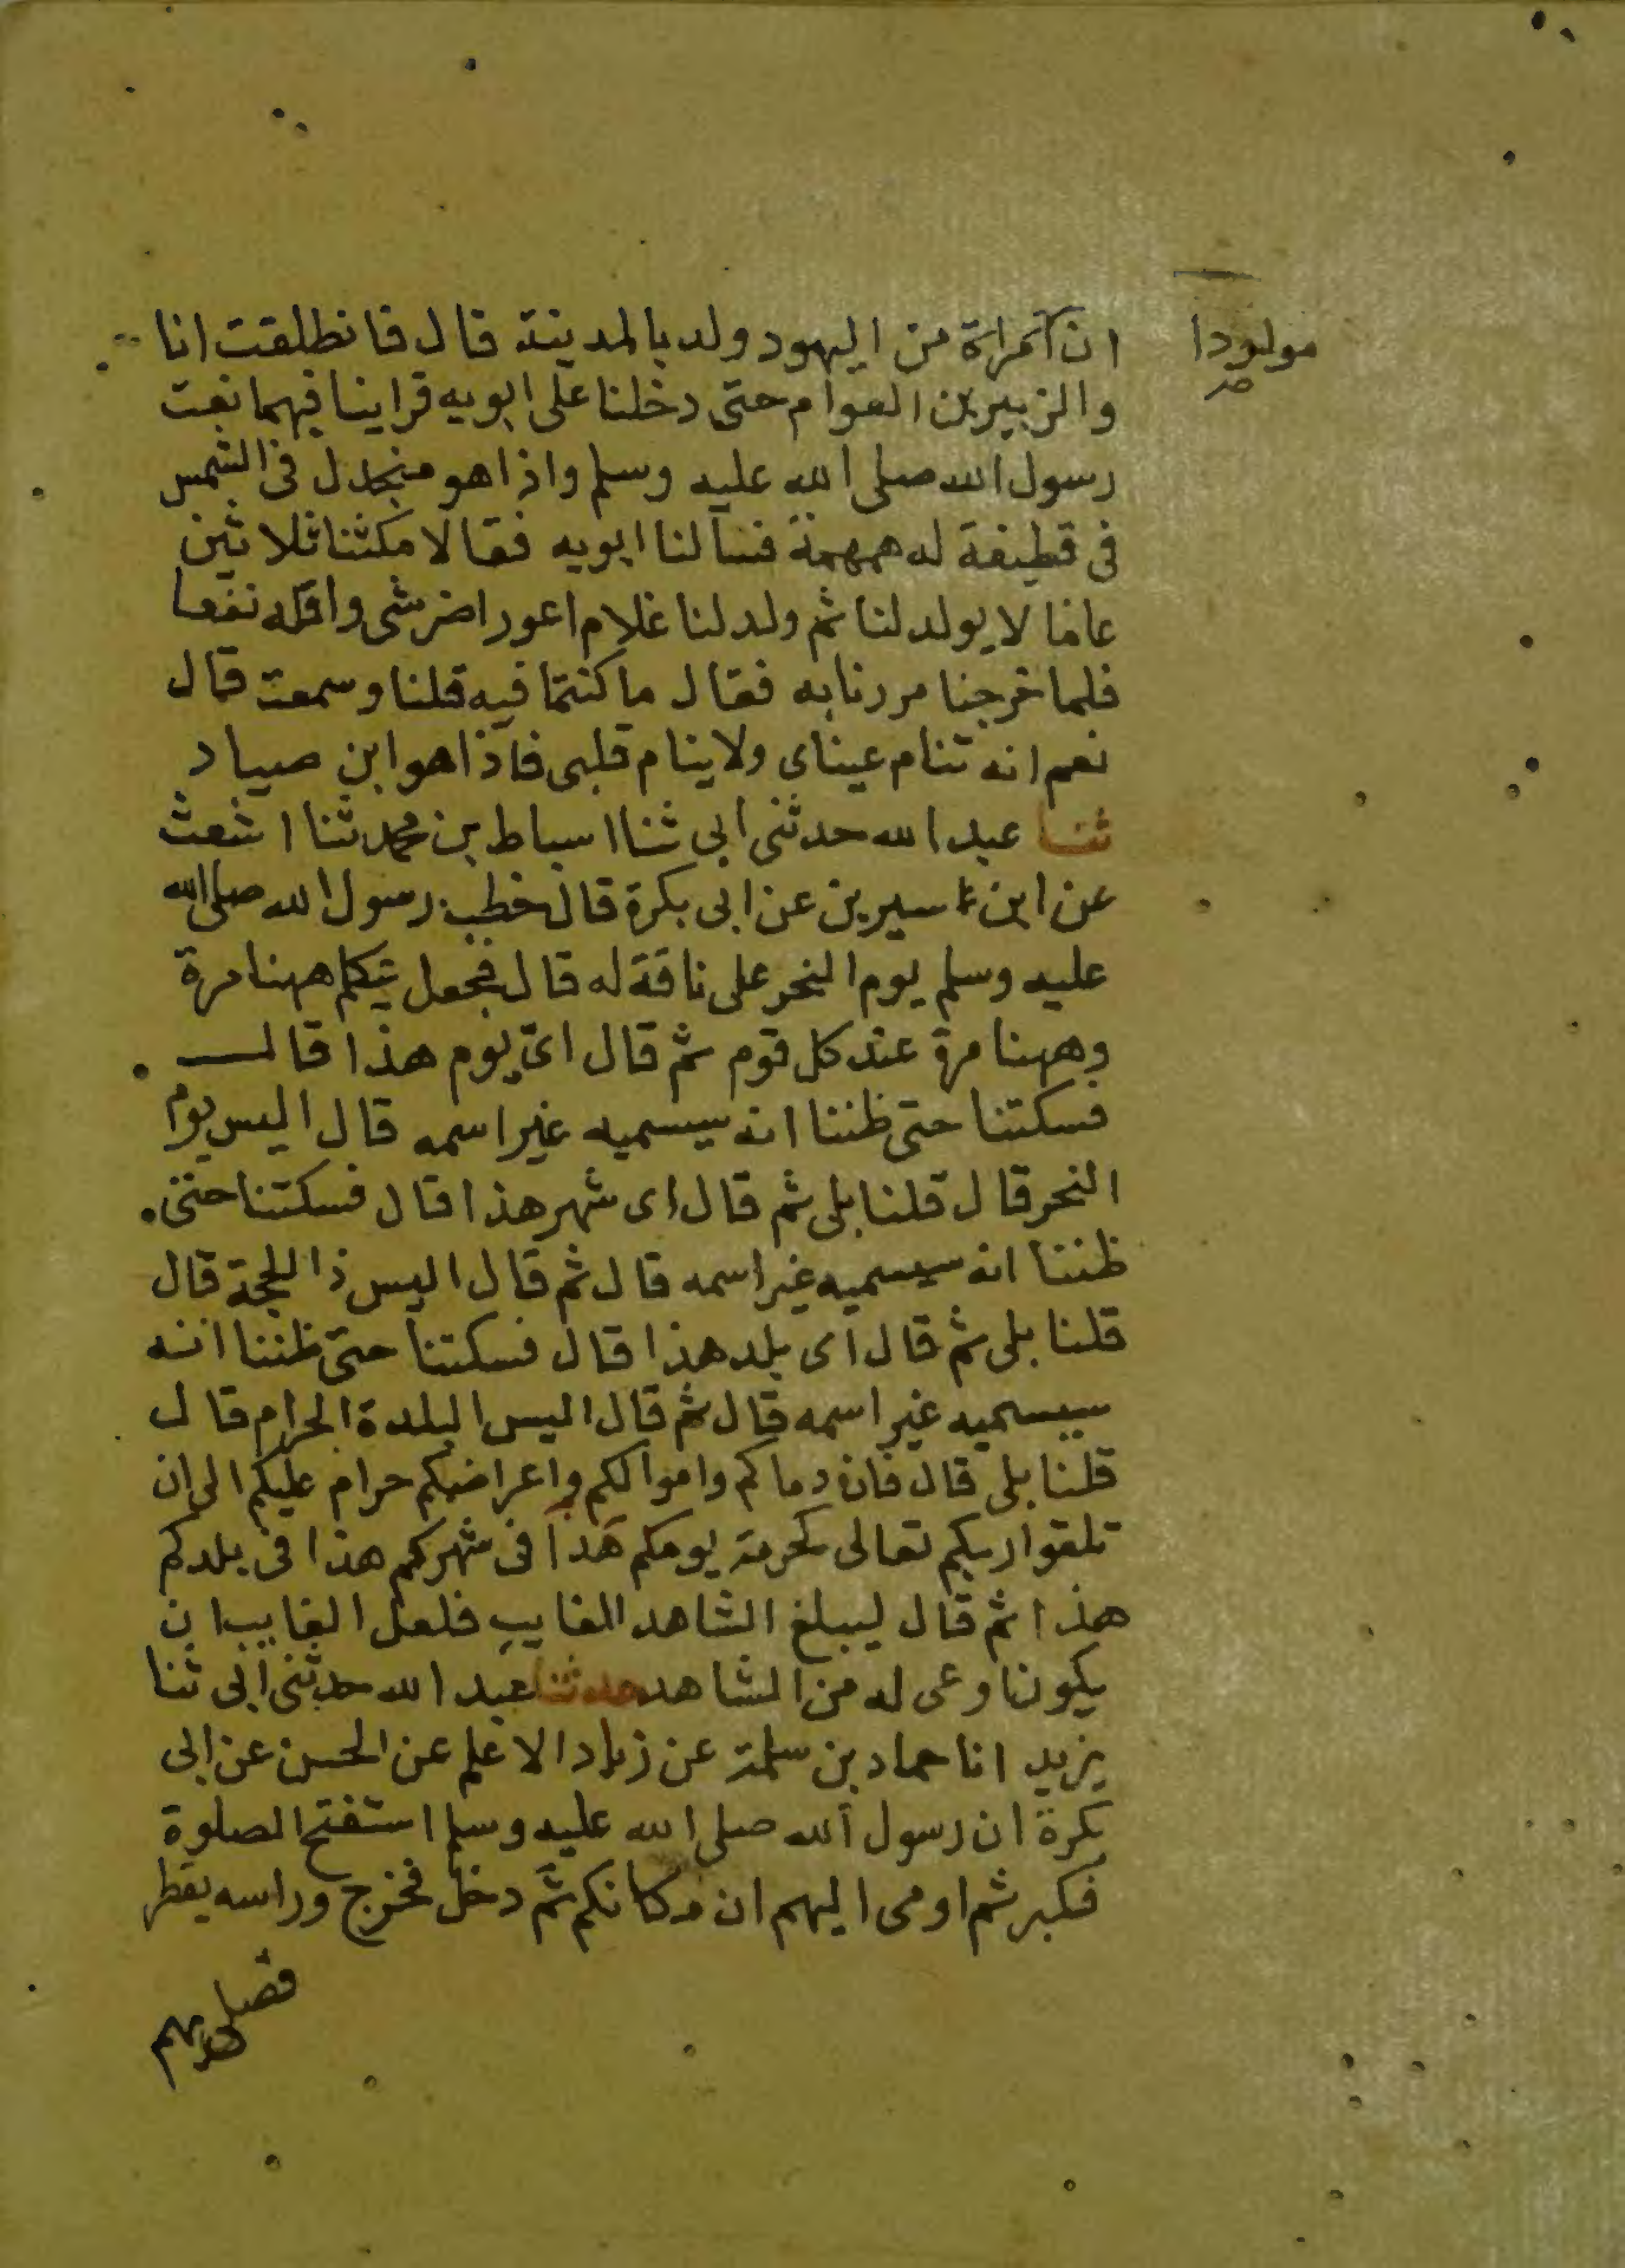 مولودا
صح
ان امراة من اليهود ولد بالمدينة قال فانطلقت انا
والزبير بن العوام حتى دخلنا على ابويه فراينا فيهما نعت
رسول الله صلى الله عليه وسلم واذا هو منجدل فى الشمس
فى قطيفة له همهمة فسالنا ابويه فقالا مكثنا ثلاثين
عاما لا يولد لنا ثم ولد لنا غلام اعور اضر شى واقله نفعا
فلما خرجنا مررنا به فقال ما كنتما فيه قلنا وسمعت قال
نعم انه تنام عيناى ولا ينام قلبى فاذا هو ابن صياد
ثنا عبد الله حدثنى ابى ثنا اسباط بن محمد ثنا اشعث
عن ابن سيرين عن ابى بكرة قال خطب رسول الله صلى الله
عليه وسلم يوم النحر على ناقة له قال فجعل يتكلم ههنا مرة
وههنا مرة عند كل قوم ثم قال اى يوم هذا قال
فسكتنا حتى ظننا انه سيسميه غير اسمه قال اليس يوم
النحر قال قلنا بلى ثم قال اى شهر هذا قال فسكتنا حتى
ظننا انه سيسميه غير اسمه قال ثم قال اليس ذا الحجة قال
قلنا بلى ثم قال اى بلد هذا قال فسكتنا حتى ظننا انه
سيسميه غير اسمه قال ثم قال اليس البلدة الحرام قال
قلنا بلى قال فان دماكم واموالكم واعراضكم حرام عليكم الى ان
تلقوا ربكم تعالى كحرمة يومكم هذا فى شهركم هذا فى بلدكم
هذا ثم قال ليبلغ الشاهد الغايب فلعل الغايب ان
يكون اوعى له من الشاهد حدثنا عبد الله حدثنى ابى ثنا
يزيد انا حماد بن سلمة عن زياد الاعلم عن الحسن عن ابى
بكرة ان رسول الله صلى الله عليه وسلم استفتح الصلوة
فكبر ثم اومى اليهم ان مكانكم ثم دخل فخرج وراسه يقطر
فصلى بهم